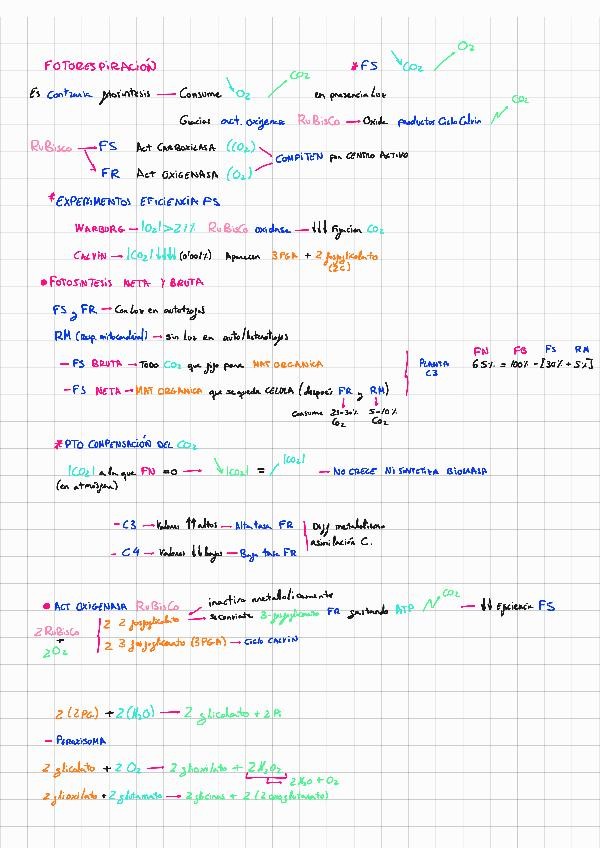 FOTORESPIRACIÓN
* FS CO2 O2
Es contraria fotosíntesis → Consume O2 CO2 en presencia luz
Gracias act. oxigenasa RuBisCo → Oxida productos Ciclo Calvin CO2
RuBisCo → FS Act CARBOXILASA (CO2)
COMPITEN por CENTRO ACTIVO
FR Act OXIGENASA (O2)
* EXPERIMENTOS EFICIENCIA FS
WARBURG → |O2| > 21% RuBisCo oxidasa → ↓↓↓ Fijación CO2
CALVIN → |CO2| ↓↓↓↓ Aparecen 3PGA + 2 fosfoglicolato
(2C)
• FOTOSÍNTESIS NETA Y BRUTA
FS y FR → Con luz en autótrofos
RM (resp. mitocondrial) → sin luz en auto/heterótrofos
– FS BRUTA → Todo CO2 que fijo para MAT ORGÁNICA
PLANTA C3
FN FB FS RM
65% = 100% - [30% + 5%]
– FS NETA → MAT ORGÁNICA que se queda CÉLULA (después FR y RM)
consume 25-30% CO2 5-10% CO2
* PTO COMPENSACIÓN DEL CO2
|CO2| a la que FN = 0 → |CO2| = |CO2| – NO CRECE NI SINTETIZA BIOMASA
(en atmósfera)
– C3 → Valores ↑↑ altos – Alta tasa FR
Diff metabolismo asimilación C.
– C4 → Valores ↓↓ bajos – Baja tasa FR
• ACT OXIGENASA RuBisCo inactiva metabólicamente
2 RuBisCo + 2O2
2 2 fosfoglicolato → se convierte 3-fosfoglicerato FR gastando ATP CO2 → ↓↓ Eficiencia FS
2 3 fosfoglicerato (3PGA) → Ciclo CALVIN
2 (2PG) + 2 (H2O) → 2 glicolato + 2 Pi
– PEROXISOMA
2 glicolato + 2 O2 → 2 glioxilato + 2 H2O2
2 H2O + O2
2 glioxilato + 2 glutamato → 2 glicinas + 2 (2 oxoglutarato)